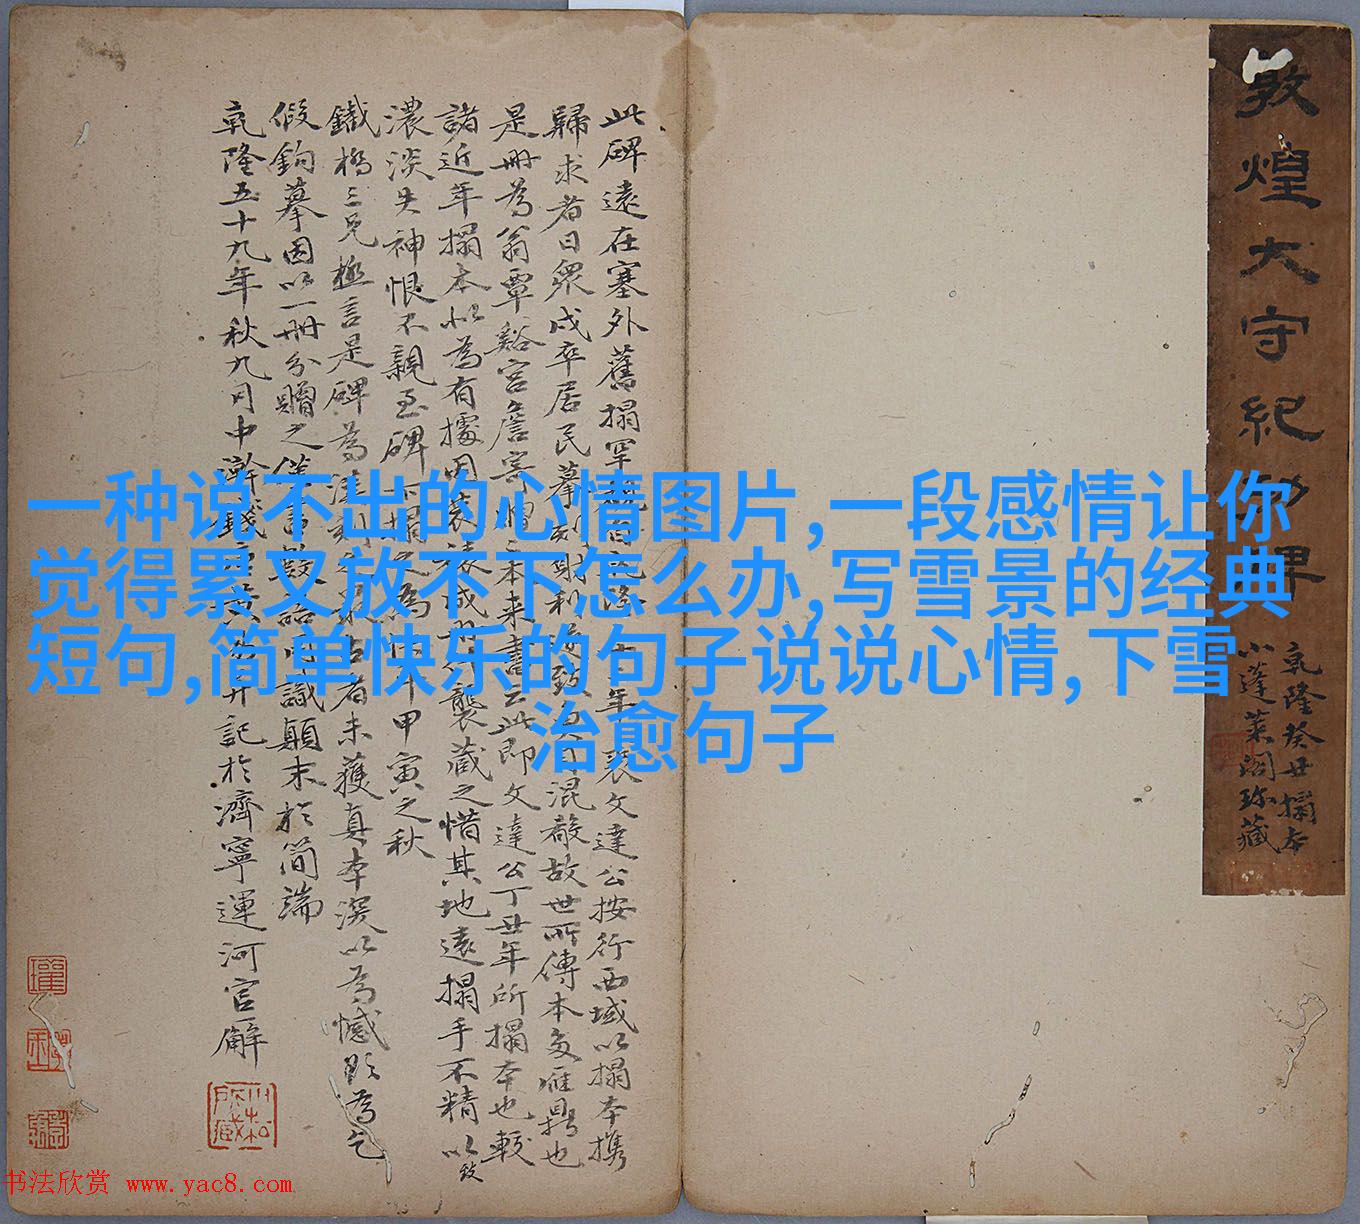 敦煌太守紀功碑
乾隆癸丑搨本
小蓬萊閣珍藏
此碑遠在塞外舊搨罕
年裴文達公按行西域以搨本攜
歸求者日眾戍卒居民摹刻射利
混殽故世所傳本多雁鼎也
是冊為翁覃谿宮詹寄贈二本來書云此即文達公丁丑年所搨本也較
諸近年搨本以為有據因裝裱成冊襲藏之惜其地遠搨手不精以致
濃淡失神恨不親至碑下
甲寅之秋
鐵橋三兄極言是碑為
者未獲真本深以為憾欵為乞
假鉤摹因以一冊分贈之
識顛末於簡端
乾隆五十九年秋九月中澣錢唐黃易并記於濟寧運河官廨
一种说不出的心情图片,一段感情让你
觉得累又放不下怎么办,写雪景的经典
短句,简单快乐的句子说说心情,下雪
治愈句子
书法欣赏 www.yac8.com